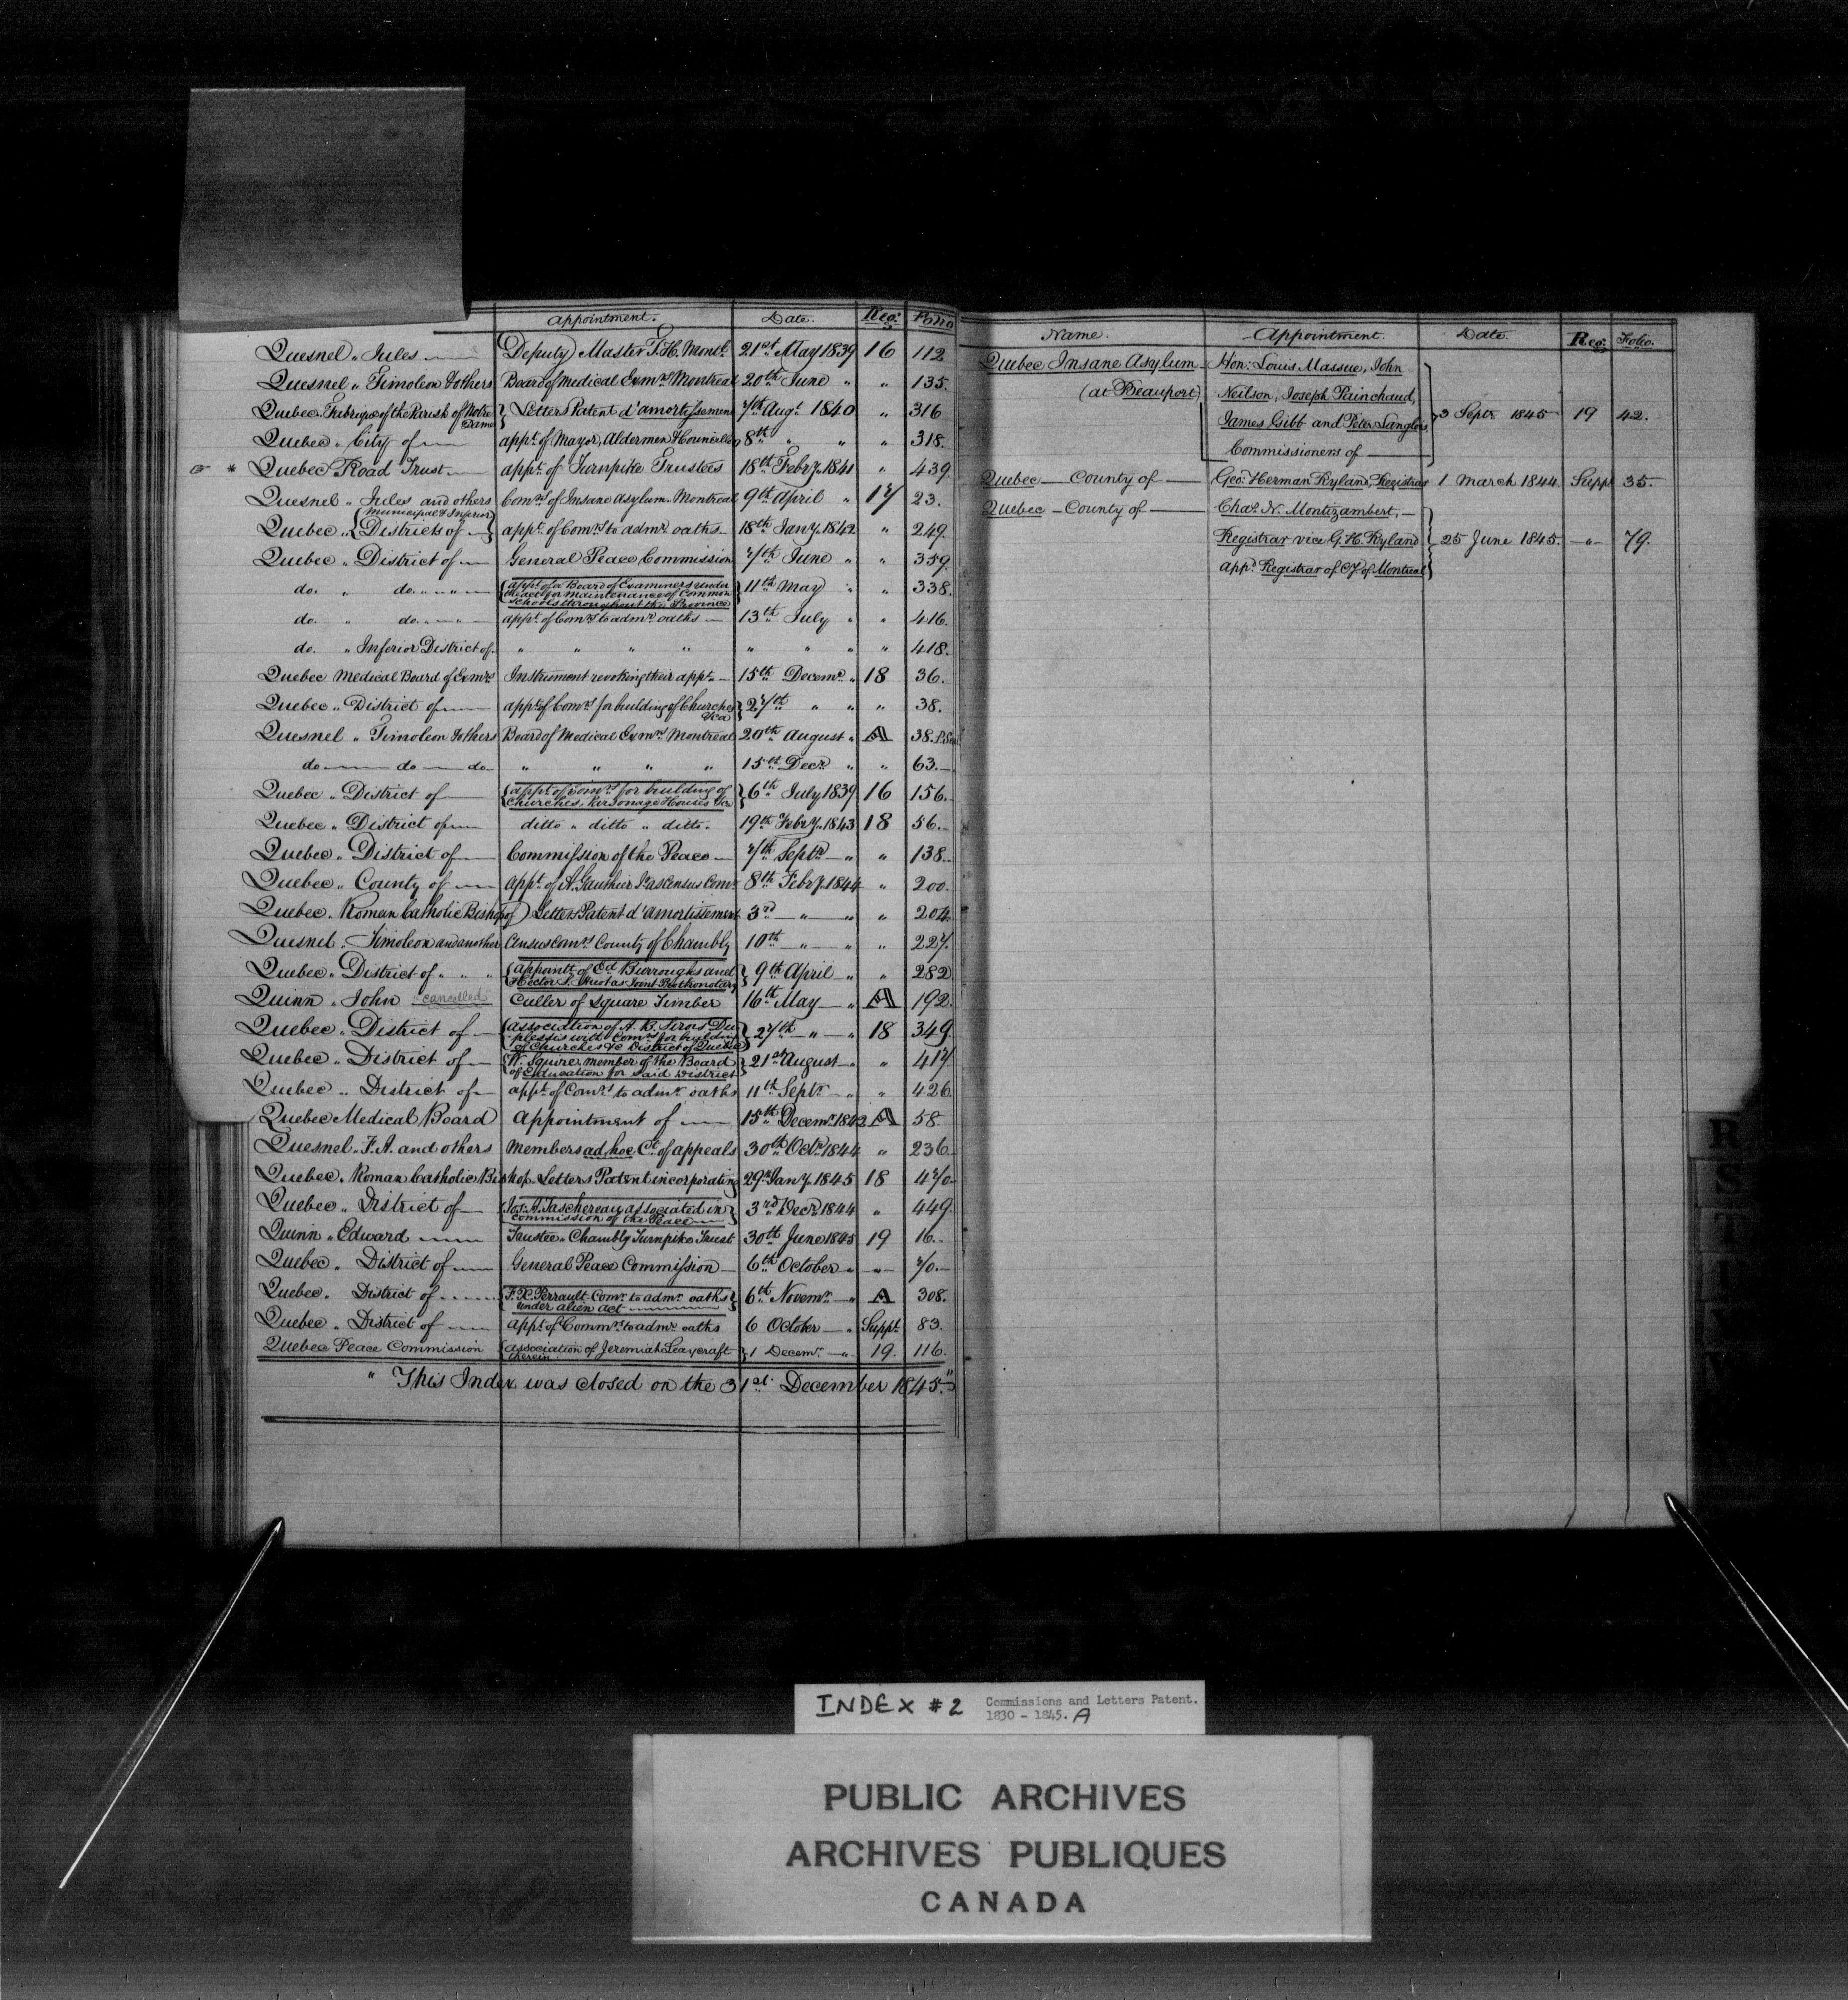 Appointment. Date. Reg: Folio
Quesnel „ Jules Deputy Master T. H. Montl. 21st May 1839 16 112
Quesnel „ Timoleon & others Board of Medical Exmrs Montreal 20th June „ „ 135.
Quebec. Fabrique of the Parish of Notre Dame } Letters Patent d'amortissement 7th Augt. 1840 „ 316
Quebec „ City of appt. of Mayor, Aldermen & Councillors 8th „ „ „ 318.
* Quebec Road Trust appt. of Turnpike Trustees 18th Febry. 1841 „ 439.
Quesnel „ Jules and others Comrs of Insane Asylum Montreal 9th April „ 17 23.
Quebec „ { Municipal & Inferior Districts of } appt. of Comrs to admr. oaths 18th Jany. 1842 „ 249.
Quebec „ District of General Peace Commission 7th June „ „ 359.
do. „ do. { appt. of a Board of Examiners under the act for maintenance of Common Schools throughout the Province } 11th May „ „ 338.
do. „ do. appt. of Comrs to admr. oaths 13th July „ „ 416.
do. „ Inferior District of „ „ „ „ „ „ „ „ 418.
Quebec Medical Board of Exmrs Instrument revoking their appt. 15th Decemr. „ 18 36.
Quebec „ District of appt. of Comrs for building of Churches &ca } 27th „ „ „ 38.
Quesnel „ Timoleon & others Board of Medical Exmrs Montreal 20th August „ A 38. P. Seal
do do do „ „ „ „ 15th Decr. „ „ 63.
Quebec „ District of { appt. of Comrs for building of Churches, Parsonage Houses &ca } 6th July 1839 16 156.
Quebec „ District of ditto „ ditto „ ditto. 19th Febry. 1843 18 56.
Quebec „ District of Commission of the Peace 7th Septr. „ „ 138.
Quebec „ County of appt. of A. Gauthier Jr as Census Comr. 8th Febry. 1844 „ 200.
Quebec. Roman Catholic Bishop of) Letters Patent d'Amortissement 3rd „ „ „ 204.
Quesnel „ Timoleon and another Census Comrs County of Chambly 10th „ „ „ 227.
Quebec „ District of „ „ „ { appointt. of Ed. Burroughs and Hector S. Huot as Joint Prothonotary } 9th April „ „ 282
Quinn „ John "cancelled" Culler of Square Timber 16th May „ A 192.
Quebec „ District of { association of A. B. Sirois Duplessis with Comrs for building of Churches &c District of Quebec } 27th „ „ 18 349.
Quebec „ District of { W. Squire member of the Board of Education for said District } 21st August „ „ 417
Quebec „ District of appt. of Comrs to admr. oaths 11th Septr. „ „ 426
Quebec Medical Board Appointment of 15th Decemr. 1842 A 58.
Quesnel „ F. A. and others Members ad hoc Ct. of appeals 30th Octr. 1844 „ 236.
Quebec. Roman Catholic Bishop Letters Patent incorporating 29th Jany. 1845 18 470.
Quebec „ District of { Jos. A. Taschereau associated in Commission of the Peace } 3rd Decr. 1844 „ 449.
Quinn „ Edward Trustee „ Chambly Turnpike Trust 30th June 1845 19 16.
Quebec „ District of General Peace Commission 6th October „ „ 70.
Quebec. District of { F. X. Perrault Comr. to admr. oaths under alien act } 6th Novemr. „ A 308.
Quebec „ District of appt. of Commrs to admr. oaths 6 October „ Suppt. 83.
Quebec Peace Commission { association of Jeremiah Leaycraft therein } 1 Decemr. „ 19. 116.
" This Index was closed on the 31st. December 1845."
Name. Appointment. Date. Reg: Folio.
Quebec Insane Asylum Hon: Louis Massue, John
(at Beauport) Neilson, Joseph Painchaud,
James Gibb and Peter Langlois } 3 Septr. 1845 19 42.
Commissioners of
Quebec County of Geo: Herman Ryland, Registrar 1 March 1844 Suppt 35.
Quebec County of Chas. N. Montizambert,
Registrar vice G. H. Ryland } 25 June 1845. „ 79.
appd. Registrar of Cy of Montreal
R
S
T
U
V
W
INDEX #2 Commissions and Letters Patent.
1830 - 1845. A
PUBLIC ARCHIVES
ARCHIVES PUBLIQUES
CANADA